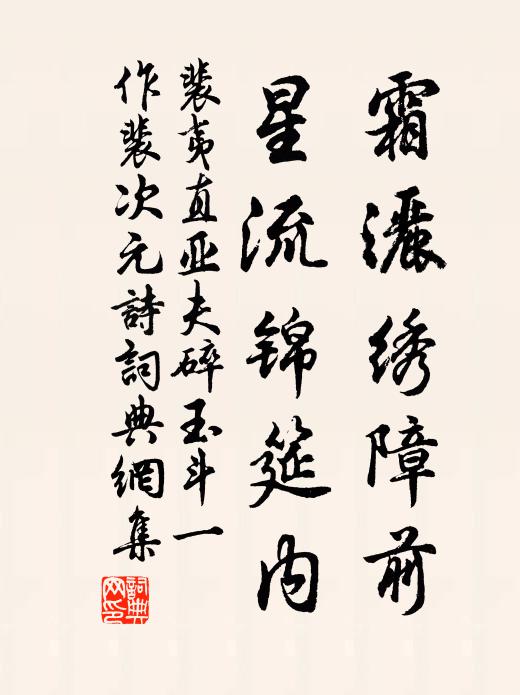 霜灑绣障前
星流锦筵内
裴夷直亚夫碎玉斗一
作裴次元詩詞典網集
詞典
网印